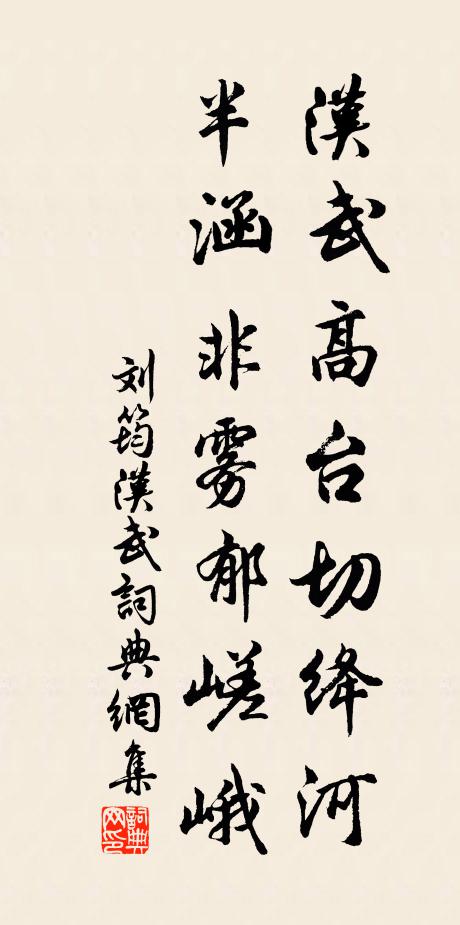 漢武高台切绛河
半涵非雾郁嵯峨
刘筠漢武詞典網集
詞典
网印